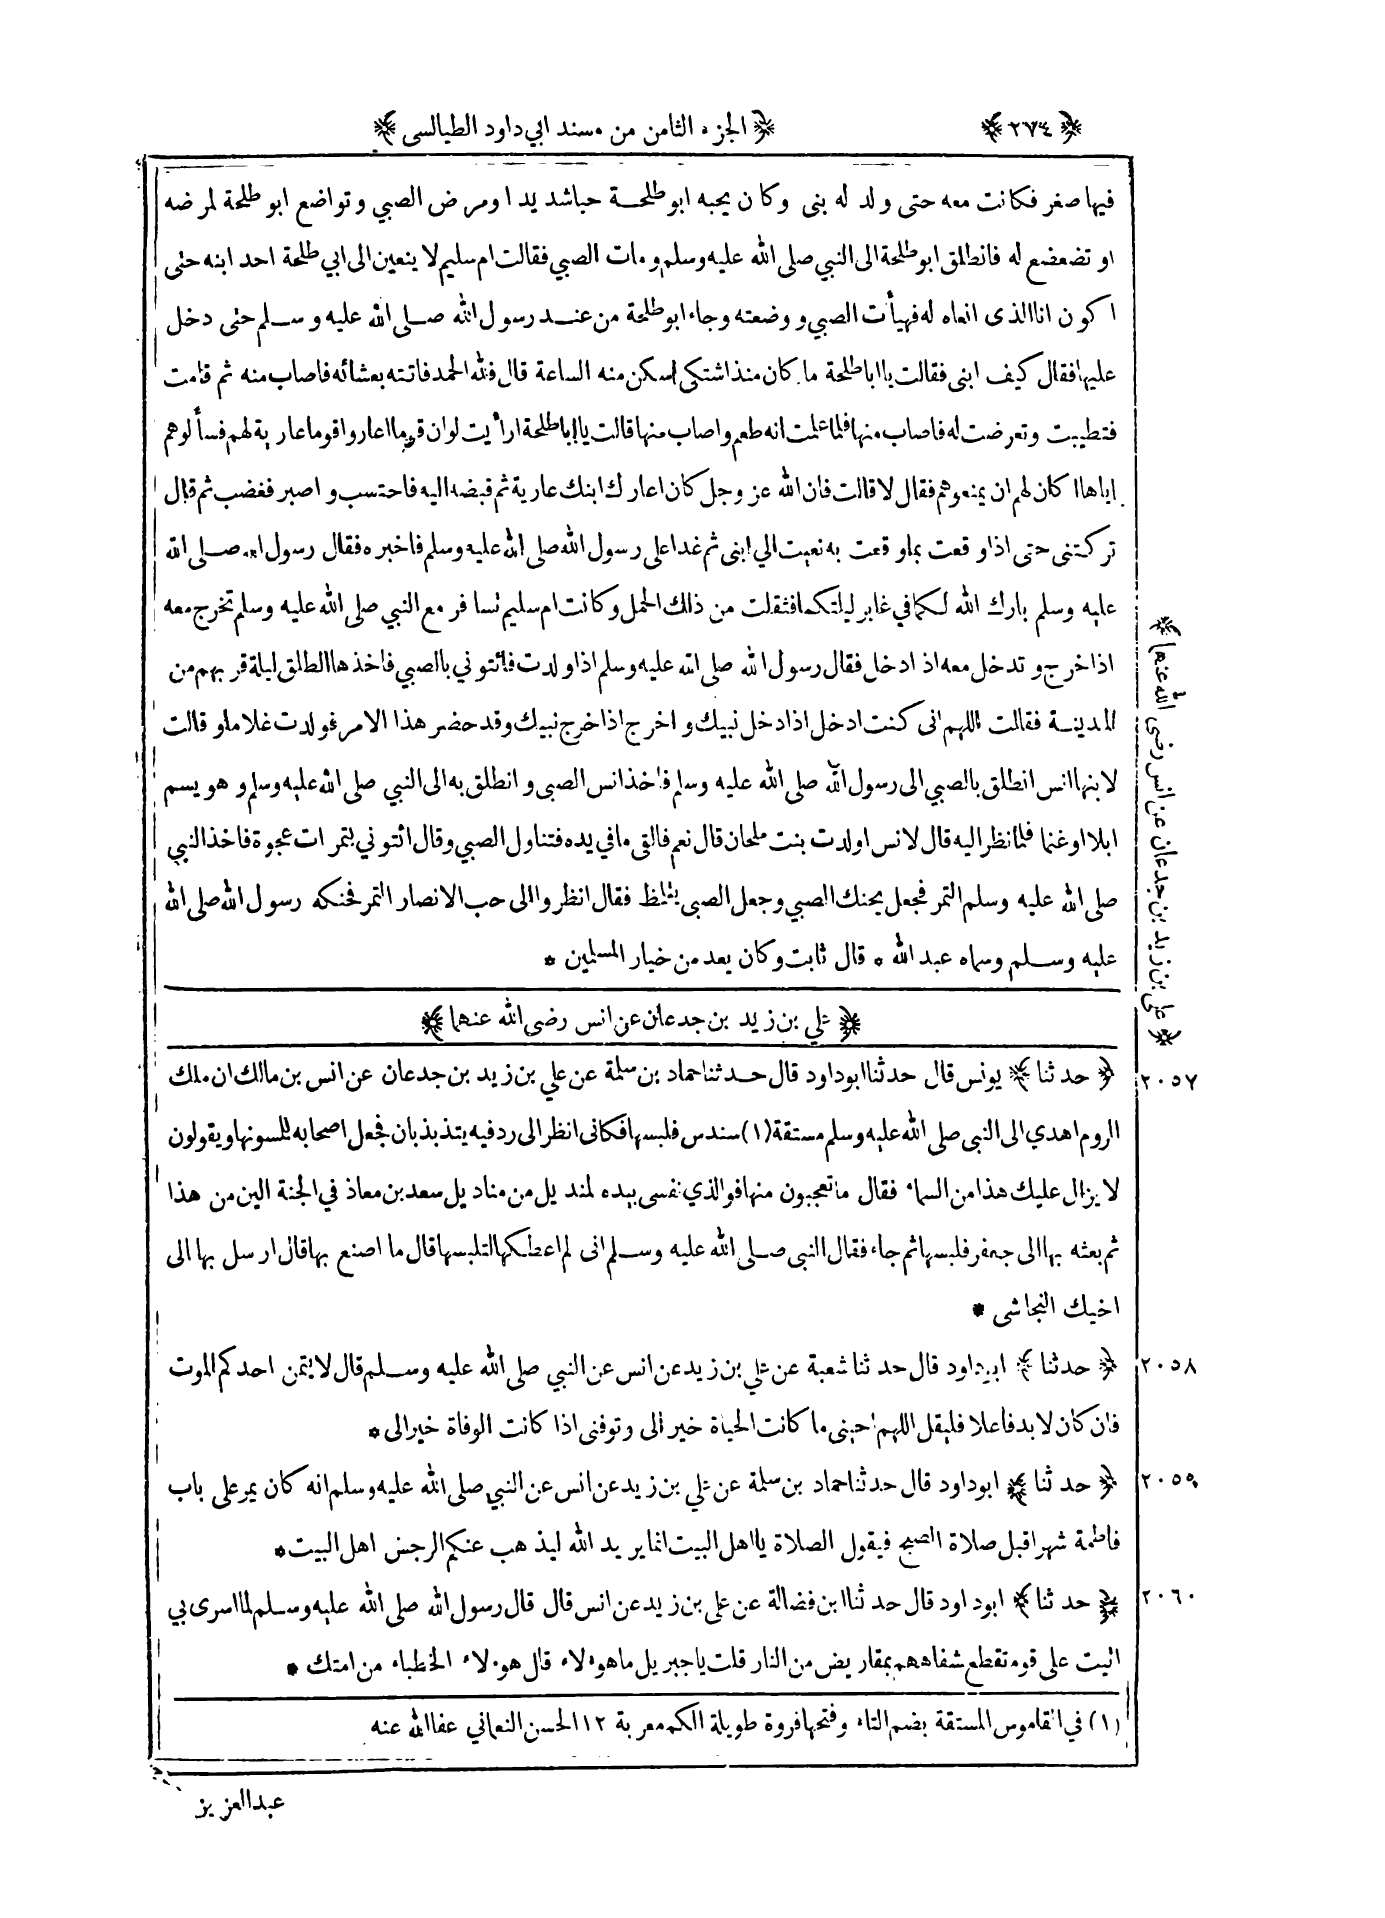 ﴿ ٢٧٤ ﴾ ﴿ الجزء الثامن من مسند ابي داود الطيالسى ﴾
فيها صغر فكانت معه حتى ولد له بنى وكان يحبه ابو طلحة حبا شديدا ومرض الصبي وتواضع ابو طلحة لمرضه
او تضعضع له فانطلق ابو طلحة الى النبي صلى الله عليه وسلم ومات الصبي فقالت ام سليم لا ينعين الى ابي طلحة احد ابنه حتى
اكون انا الذى انعاه له فهيأت الصبي ووضعته وجاء ابو طلحة من عند رسول الله صلى الله عليه وسلم حتى دخل
عليها فقال كيف ابنى فقالت يا ابا طلحة ما كان منذ اشتكى اسكن منه الساعة قال فلله الحمد فاتته بعشائه فاصاب منه ثم قامت
فتطيبت وتعرضت له فاصاب منها فلما علمت انه طعم واصاب منها قالت يا ابا طلحة ارأيت لو ان قوما اعاروا قوما عارية لهم فسألوهم
اياها اكان لهم ان يمنعوهم فقال لا قالت فان الله عز وجل كان اعارك ابنك عارية ثم قبضه اليه فاحتسب واصبر فغضب ثم قال
تركتنى حتى اذا وقعت بما وقعت به نعيت الي ابنى ثم غدا على رسول الله صلى الله عليه وسلم فاخبره فقال رسول الله صلى الله
عليه وسلم بارك الله لكما في غابر ليلتكما فثقلت من ذلك الحمل وكانت ام سليم تسافر مع النبي صلى الله عليه وسلم تخرج معه
اذا خرج وتدخل معه اذا دخل فقال رسول الله صلى الله عليه وسلم اذا ولدت فائتوني بالصبي فاخذها الطلق ليلة قربهم من
المدينة فقالت اللهم انى كنت ادخل اذا دخل نبيك واخرج اذا خرج نبيك وقد حضر هذا الامر فولدت غلاما وقالت
لابنها انس انطلق بالصبي الى رسول الله صلى الله عليه وسلم فاخذ انس الصبى وانطلق به الى النبي صلى الله عليه وسلم وهو يسم
ابلا او غنما فلما نظر اليه قال لانس اولدت بنت ملحان قال نعم فالقى ما في يده فتناول الصبي وقال ائتوني بتمرات عجوة فاخذ النبي
صلى الله عليه وسلم التمر فجعل يحنك الصبي وجعل الصبى يتلمظ فقال انظروا الى حب الانصار التمر فحنكه رسول الله صلى الله
عليه وسلم وسماه عبد الله * قال ثابت وكان يعد من خيار المسلمين *
﴿ علي بن زيد بن جدعان عن انس رضى الله عنهما ﴾
﴿ على بن زيد بن جدعان عن انس رضى الله عنهما ﴾
٢٠٥٧ ﴿ حدثنا ﴾ يونس قال حدثنا ابو داود قال حدثنا حماد بن سلمة عن علي بن زيد بن جدعان عن انس بن مالك ان ملك
الروم اهدي الى النبى صلى الله عليه وسلم مستقة (١) سندس فلبسها فكانى انظر الى ردفيه يتذبذبان فجعل اصحابه يلسونها ويقولون
لا يزال عليك هذا من السماء فقال ما تعجبون منها فوالذي نفسى بيده لمنديل من مناديل سعد بن معاذ في الجنة الين من هذا
ثم بعثه بها الى جعفر فلبسها ثم جاء فقال النبى صلى الله عليه وسلم انى لم اعطكها لتلبسها قال ما اصنع بها قال ارسل بها الى
اخيك النجاشى *
٢٠٥٨ ﴿ حدثنا ﴾ ابو داود قال حدثنا شعبة عن علي بن زيد عن انس عن النبي صلى الله عليه وسلم قال لا يتمن احدكم الموت
فان كان لا بد فاعلا فليقل اللهم احينى ما كانت الحياة خير الى وتوفنى اذا كانت الوفاة خير الى *
٢٠٥٩ ﴿ حدثنا ﴾ ابو داود قال حدثنا حماد بن سلمة عن علي بن زيد عن انس عن النبي صلى الله عليه وسلم انه كان يمر على باب
فاطمة شهرا قبل صلاة الصبح فيقول الصلاة يا اهل البيت انما يريد الله ليذهب عنكم الرجس اهل البيت *
٢٠٦٠ ﴿ حدثنا ﴾ ابو داود قال حدثنا ابن فضالة عن على بن زيد عن انس قال قال رسول الله صلى الله عليه وسلم لما اسرى بي
اتيت على قوم تقطع شفاههم بمقاريض من النار قلت يا جبريل ما هؤلاء قال هؤلاء الخطباء من امتك *
(١) في القاموس المستقة بضم التاء وفتحها فروة طويلة الكم معربة ١٢ الحسن النعماني عفا الله عنه
عبد العزيز